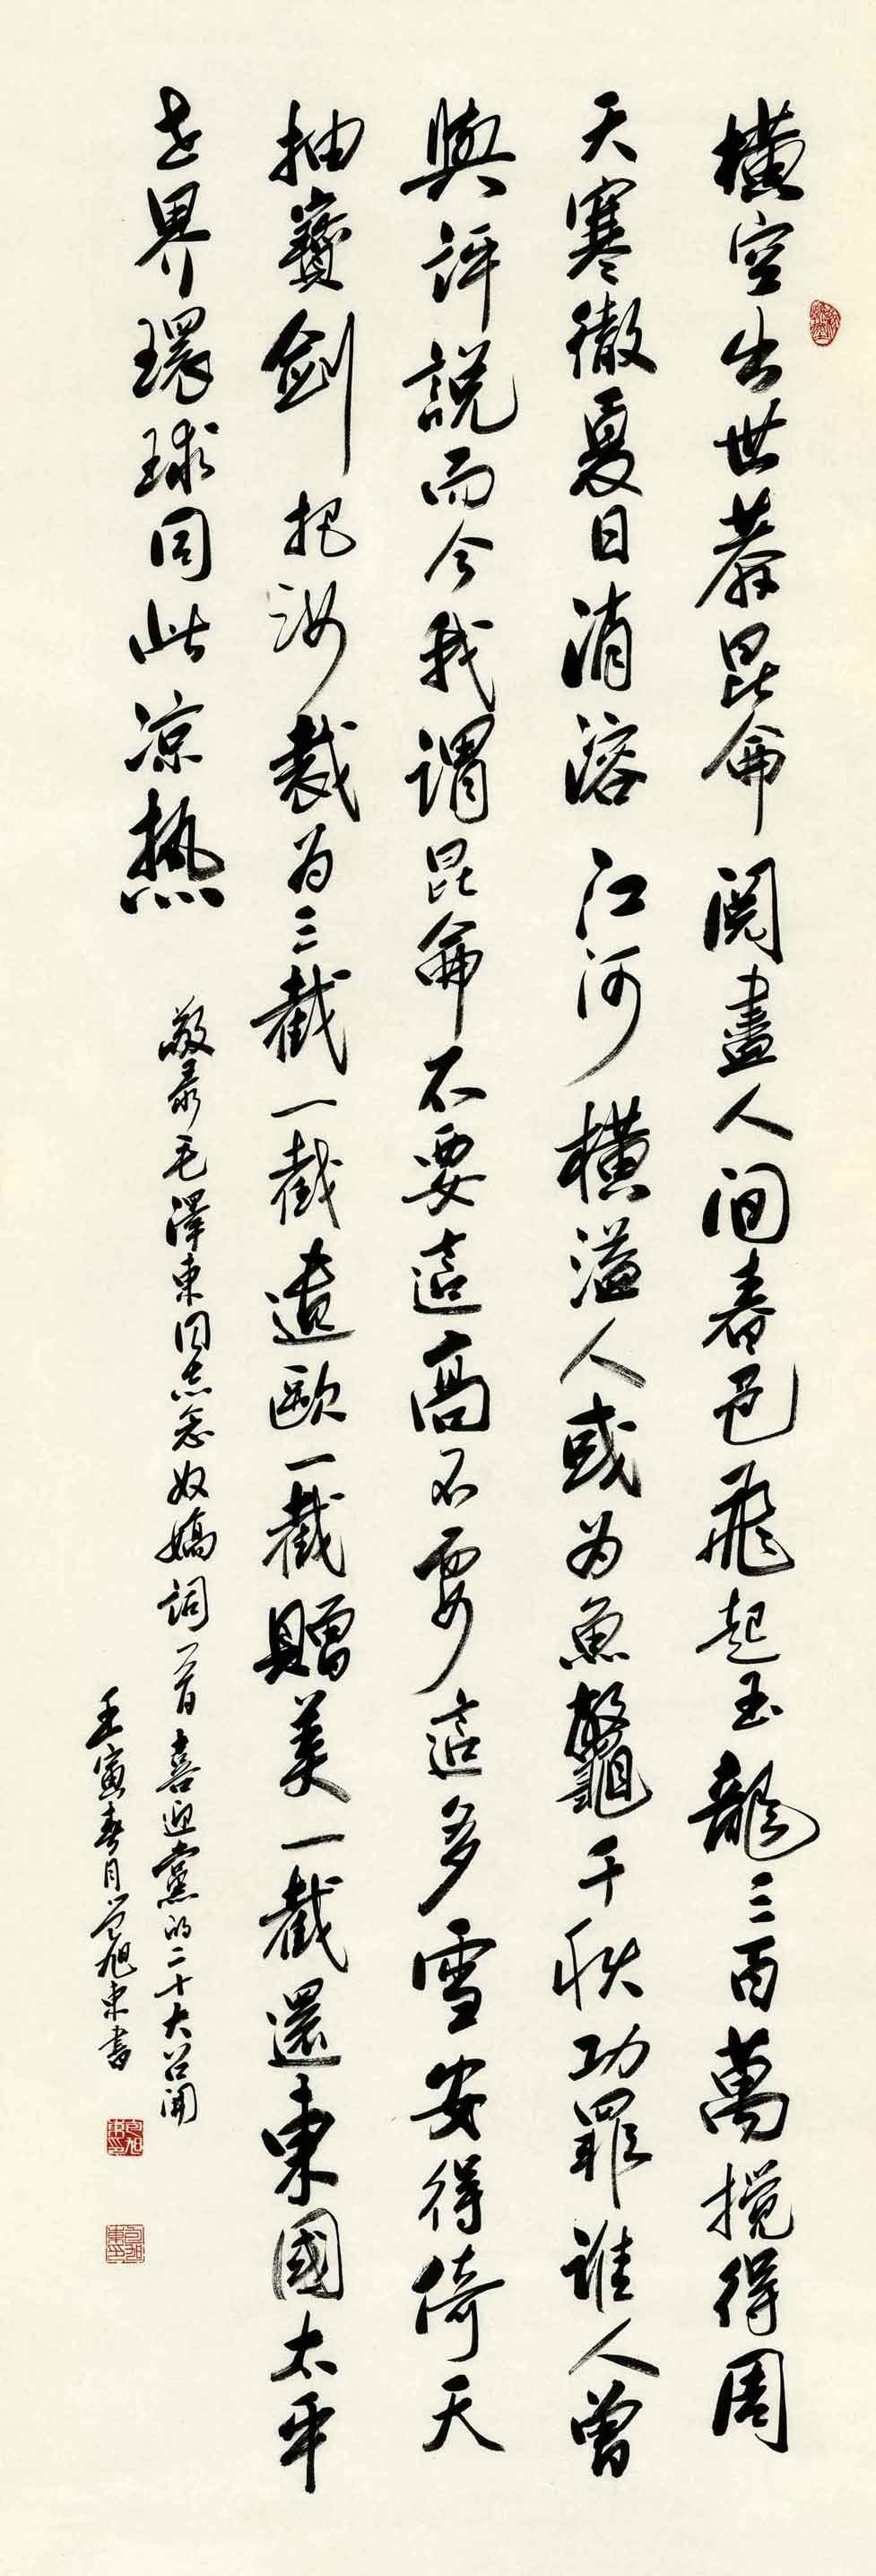 橫空出世莽昆侖閱盡人间春色飛起玉龍三百萬攪得周
天寒徹夏日消溶江河橫溢人或为魚鼈千秋功罪誰人曾
與評說而今我謂昆侖不要這高不要這多雪安得倚天
抽寶劍把汝裁为三截一截遺歐一截贈美一截還東國太平
世界環球同此凉熱
敬录毛澤東同志念奴嬌詞一首喜迎黨的二十大召開
壬寅春月旭東書